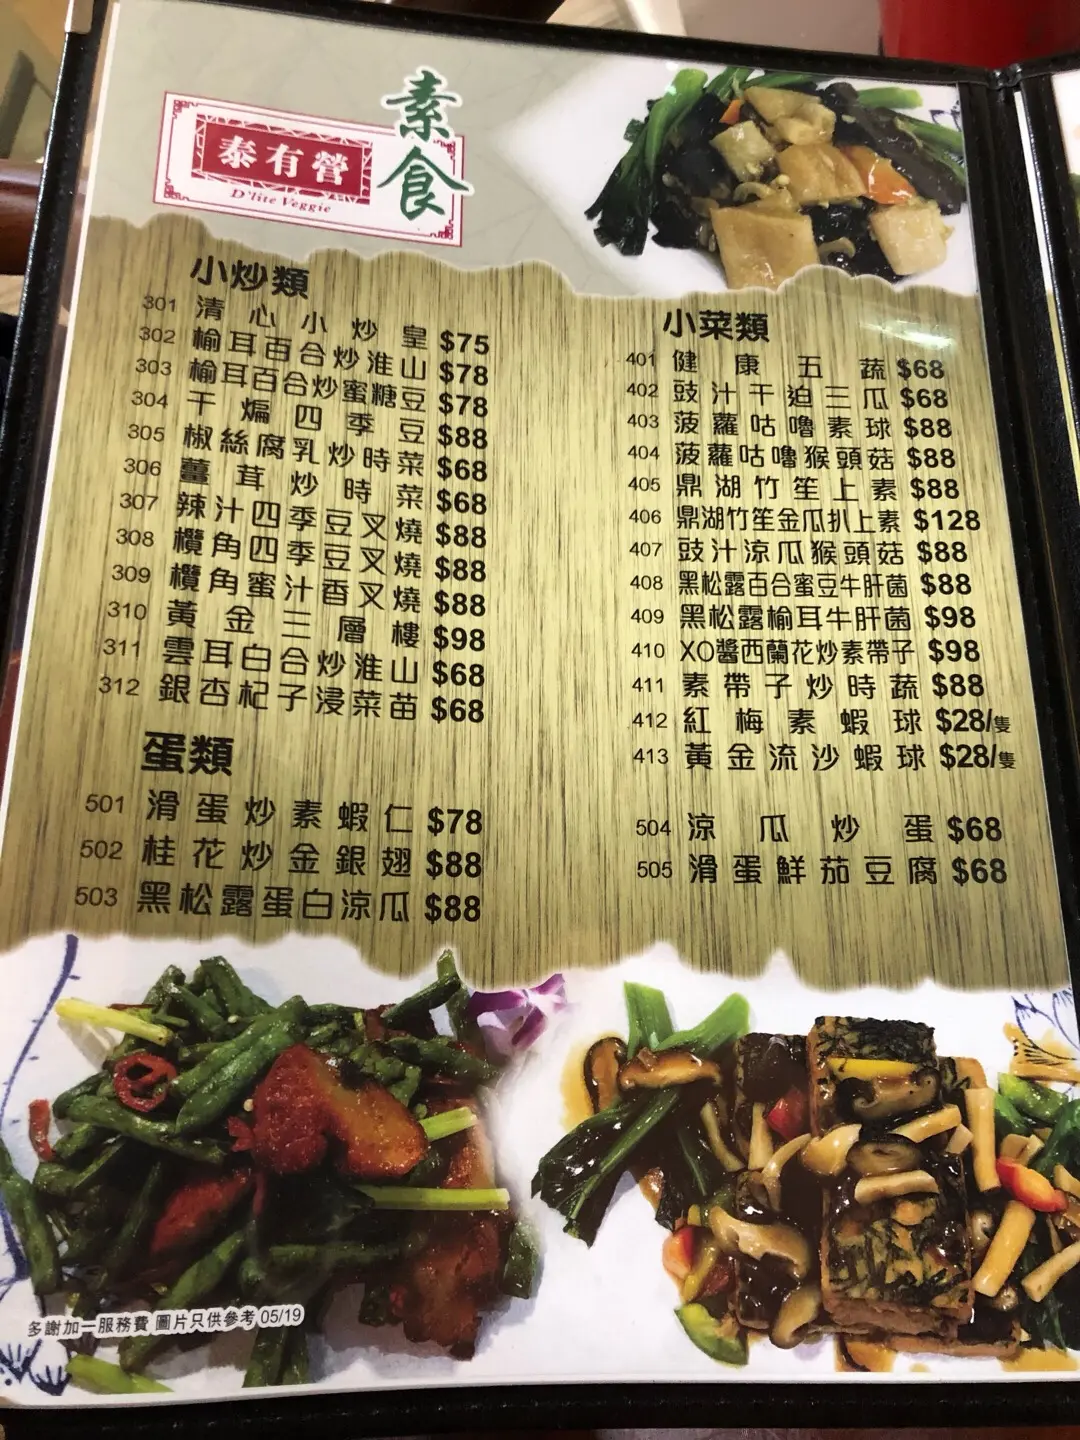 素食
泰有營
D'lite Veggie
小炒類
301 清心小炒皇 $75
302 榆耳百合炒淮山 $78
303 榆耳百合炒蜜糖豆 $78
304 干煸四季豆 $88
305 椒絲腐乳炒時菜 $68
306 薑茸炒時菜 $68
307 辣汁四季豆叉燒 $88
308 欖角四季豆叉燒 $88
309 欖角蜜汁香叉燒 $88
310 黃金三層樓 $98
311 雲耳白合炒淮山 $68
312 銀杏杞子浸菜苗 $68
小菜類
401 健康五蔬 $68
402 豉汁干迫三瓜 $68
403 菠蘿咕嚕素球 $88
404 菠蘿咕嚕猴頭菇 $88
405 鼎湖竹笙上素 $88
406 鼎湖竹笙金瓜扒上素 $128
407 豉汁涼瓜猴頭菇 $88
408 黑松露百合蜜豆牛肝菌 $88
409 黑松露榆耳牛肝菌 $98
410 XO醬西蘭花炒素帶子 $98
411 素帶子炒時蔬 $88
412 紅梅素蝦球 $28/隻
413 黃金流沙蝦球 $28/隻
蛋類
501 滑蛋炒素蝦仁 $78
502 桂花炒金銀翅 $88
503 黑松露蛋白涼瓜 $88
504 涼瓜炒蛋 $68
505 滑蛋鮮茄豆腐 $68
多謝加一服務費 圖片只供參考 05/19